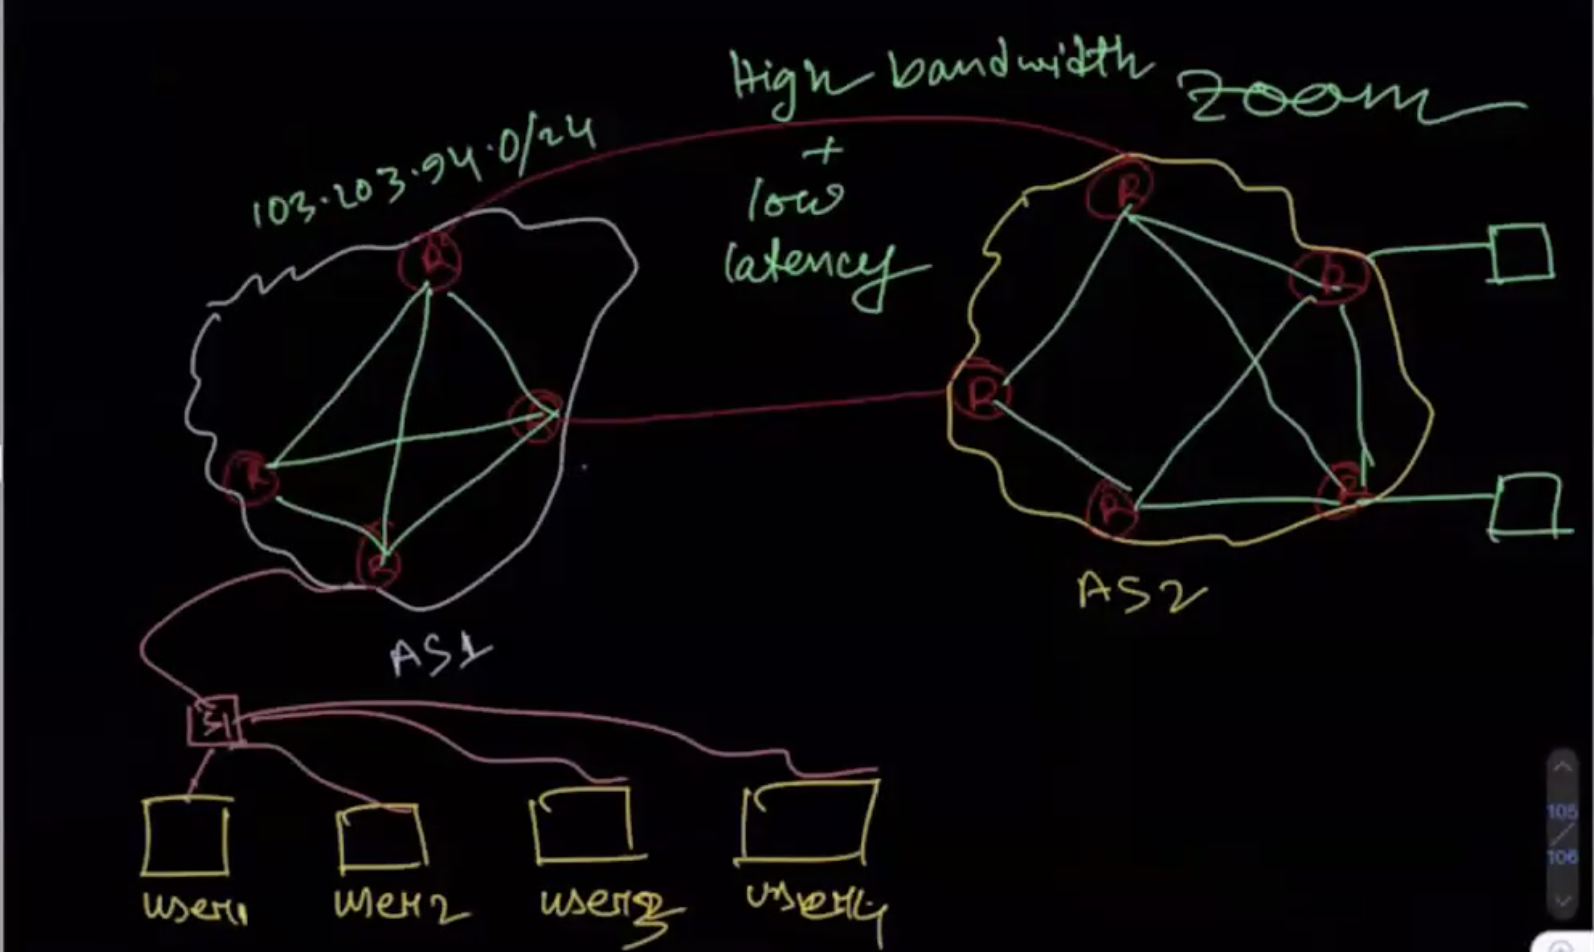 High bandwidth
+
low
latency
zoom
103.203.94.0/24
R
R
R
R
AS1
R
R
R
R
R
AS2
S1
user1
user2
user3
user4
105
106